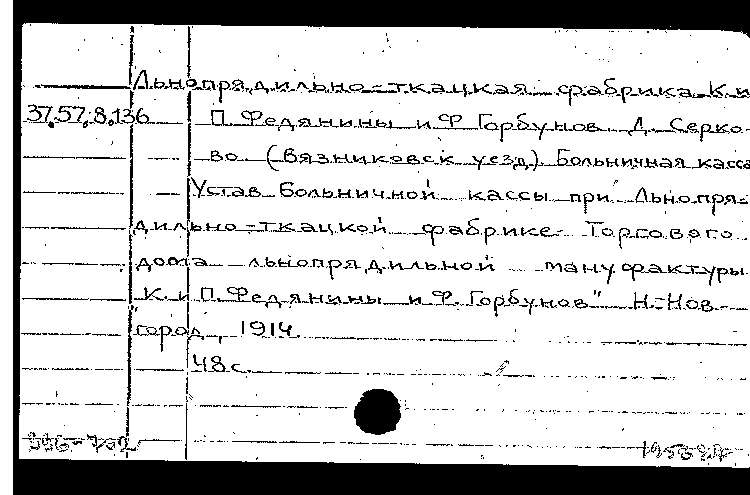 Льнопрядильно-ткацкая фабрика К. и
37.57.8.136 П. Федянины и Ф Горбунов Д. Серко-
во (Вязниковск уезд). Больничная касса
Устав больничной кассы при Льнопря-
дильно-ткацкой фабрике Торгового
дома льнопрядильной мануфактуры
"К. и П. Федянины и Ф. Горбунов" Н.-Нов-
город, 1914
48 с.